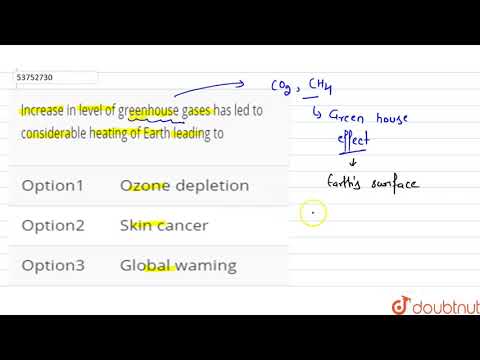 53752730
Increase in level of greenhouse gases has led to
considerable heating of Earth leading to
Option1 Ozone depletion
Option2 Skin cancer
Option3 Global waming
CO2, CH4
Green house
effect
Earth's surface
doubtnut